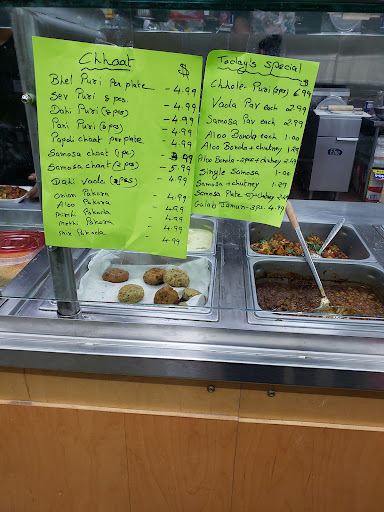 Chhaat
$
Bhel Puri Per plate - 4.99
Sev Puri 8 pcs. - 4.99
Dahi Puri (8 pcs) - 4.99
Pani Puri (8 pcs) - 4.99
Papdi chaat per plate - 4.99
Samosa chaat (1 pc) - 3.99
Samosa chaat (2 pcs) - 5.99
Dahi Vada (2 pcs) - 4.99
Onion Pakora - 4.99
Aloo Pakora - 4.99
Mirchi Pakoda - 4.99
Methi Pakora - 4.99
Mix Pakoda - 4.99
Today's Special
$
Chhole Puri (2 pcs) 6.99
Vada Pav each 2.99
Samosa Pav each 2.99
Aloo Bonda each 1.00
Aloo Bonda + chutney 1.29
Aloo Bonda - 2 pcs + chutney 2.49
Single Samosa - 1.00
Samosa + chutney - 1.29
Samosa Plate
Gulab Jamun - 3 pcs. - 4.99